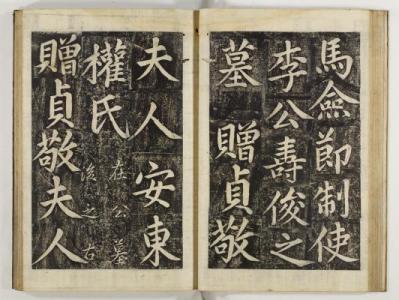 馬僉節制使
李公壽俊之
墓　贈貞敬
夫人安東
權氏
在公墓
後之右
贈貞敬夫人